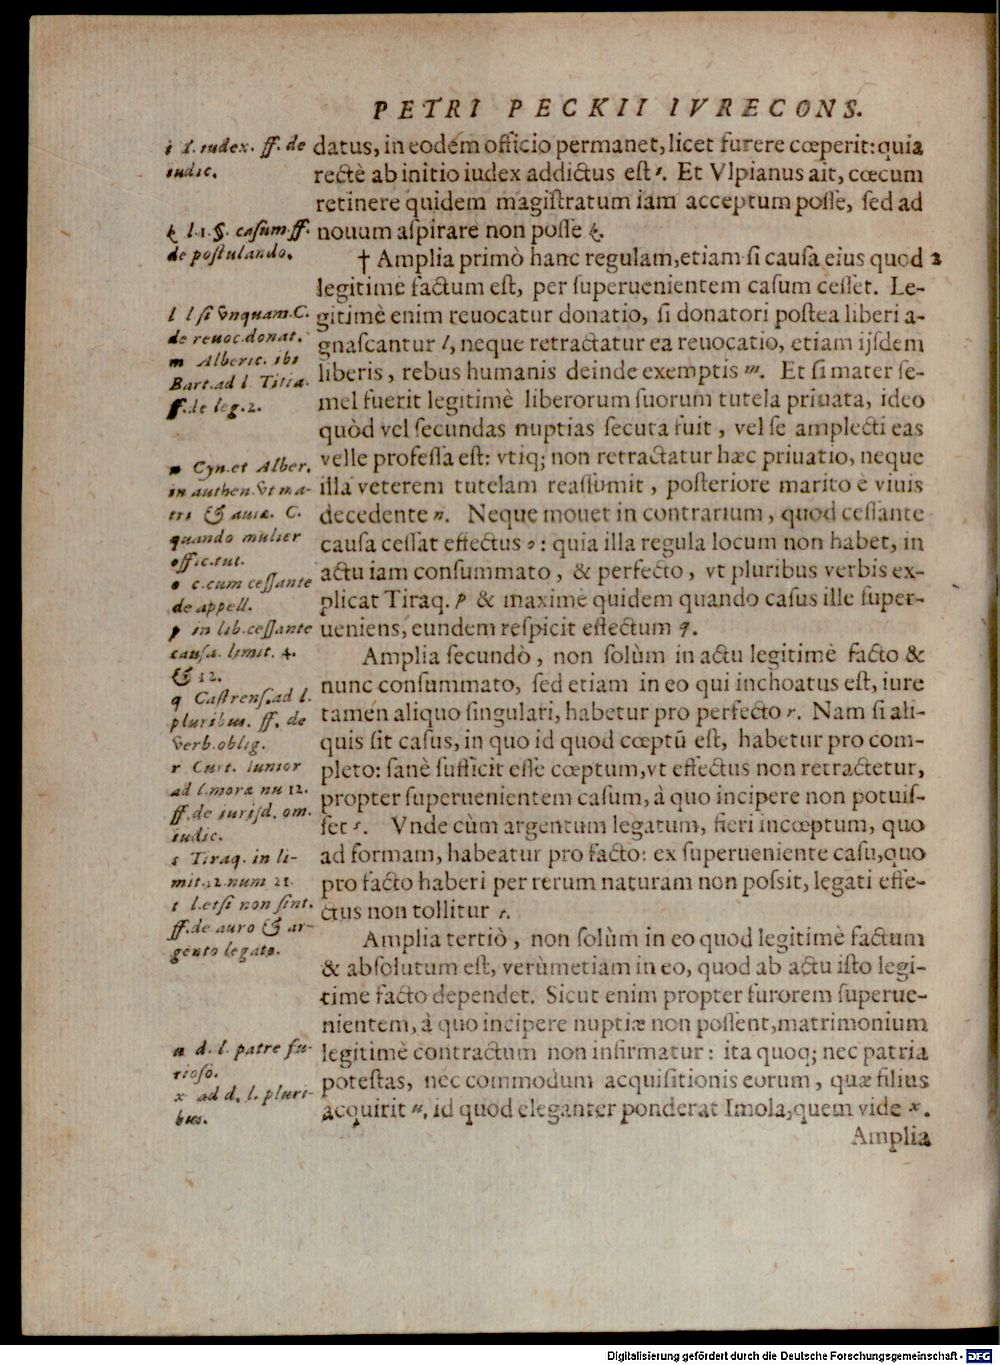 PETRI PECKII IVRECONS.
datus, in eodem officio permanet, licet furere cœperit: quia
rectè ab initio iudex addictus est i. Et Vlpianus ait, cœcum
retinere quidem magistratum iam acceptum posse, sed ad
nouum aspirare non posse k.
† Amplia primò hanc regulam, etiam si causa eius quod 2
legitimè factum est, per superuenientem casum cesset. Le-
gitimè enim reuocatur donatio, si donatori postea liberi a-
gnascantur l, neque retractatur ea reuocatio, etiam ijsdem
liberis, rebus humanis deinde exemptis m. Et si mater se-
mel fuerit legitimè liberorum suorum tutela priuata, ideo
quòd vel secundas nuptias secuta fuit, vel se amplecti eas
velle professa est: vtiq; non retractatur hæc priuatio, neque
illa veterem tutelam reassumit, posteriore marito è viuis
decedente n. Neque mouet in contrarium, quod cessante
causa cessat effectus o: quia illa regula locum non habet, in
actu iam consummato, & perfecto, vt pluribus verbis ex-
plicat Tiraq. p & maximè quidem quando casus ille super-
ueniens, eundem respicit effectum q.
Amplia secundò, non solùm in actu legitimè facto &
nunc consummato, sed etiam in eo qui inchoatus est, iure
tamen aliquo singulari, habetur pro perfecto r. Nam si ali-
quis sit casus, in quo id quod cœptū est, habetur pro com-
pleto: sanè sufficit esse cœptum, vt effectus non retractetur,
propter superuenientem casum, à quo incipere non potuis-
set s. Vnde cùm argentum legatum, fieri incœptum, quo
ad formam, habeatur pro facto: ex superueniente casu, quo
pro facto haberi per rerum naturam non possit, legati effe-
ctus non tollitur t.
Amplia tertiò, non solùm in eo quod legitimè factum
& absolutum est, verùmetiam in eo, quod ab actu isto legi-
time facto dependet. Sicut enim propter furorem superue-
nientem, à quo incipere nuptiæ non possent, matrimonium
legitimè contractum non infirmatur: ita quoq; nec patria
potestas, nec commodum acquisitionis eorum, quæ filius
acquirit u, id quod eleganter ponderat Imola, quem vide x.
Amplia
i l. iudex. ff. de
iudic.
k l. 1. §. casum ff.
de postulando.
l l si vnquam. C.
de reuoc. donat.
m Alberic. ibi
Bart. ad l. Titia.
ff. de leg. 2.
n Cyn. et Alber.
in authen. vt ma-
tri & auiæ. C.
quando mulier
offic. tut.
o c. cum cessante
de appell.
p in lib. cessante
causa. limit. 4.
& 12.
q Castrens. ad l.
pluribus. ff. de
verb. oblig.
r Curt. Iunior
ad l. more nu 12.
ff. de iurisd. om.
iudic.
s Tiraq. in li-
mit. 12 num 21
t l. etsi non sint.
ff. de auro & ar-
gento legato.
u d. l. patre fu-
rioso.
x ad d. l. pluri-
bus.
Digitalisierung gefördert durch die Deutsche Forschungsgemeinschaft - DFG